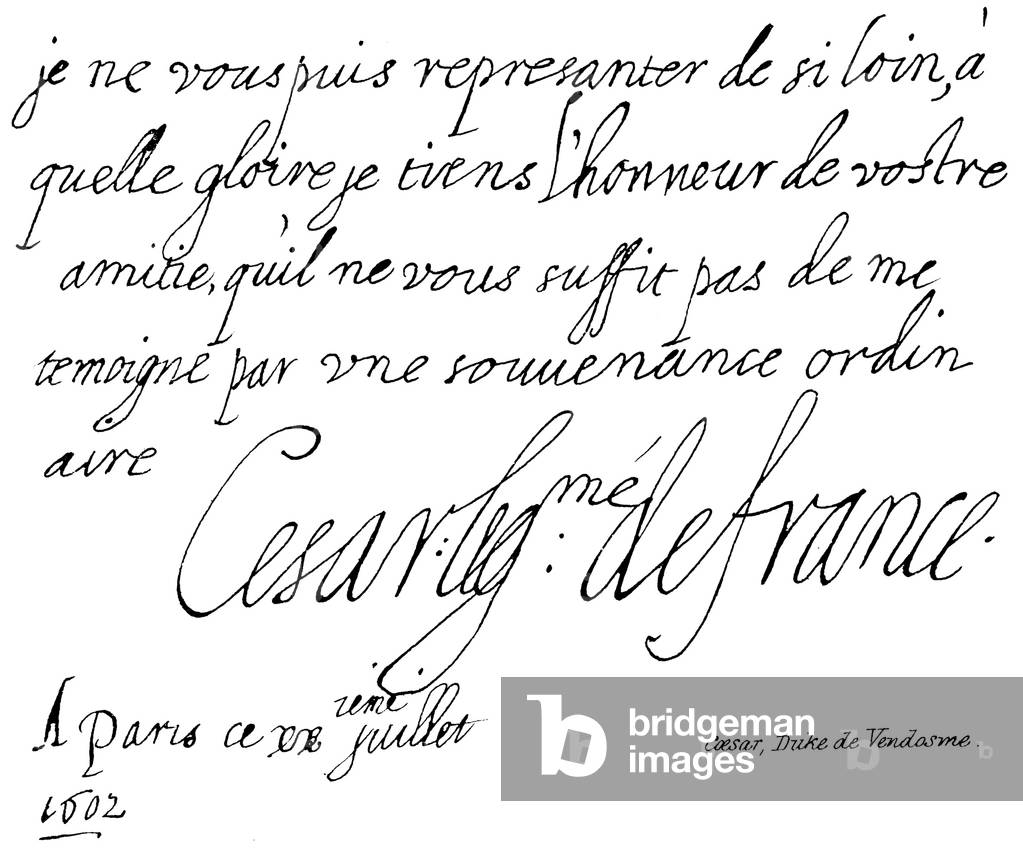 je ne vous puis represanter de si loin, à
quelle gloire je tiens l'honneur de vostre
amitie, qu'il ne vous suffit pas de me
temoigne par vne souuenance ordin
aire
Cesar: leg.mé de france.
A Paris ce xxieme juillet
1602
bridgeman
images
Cœsar, Duke de Vendosme.